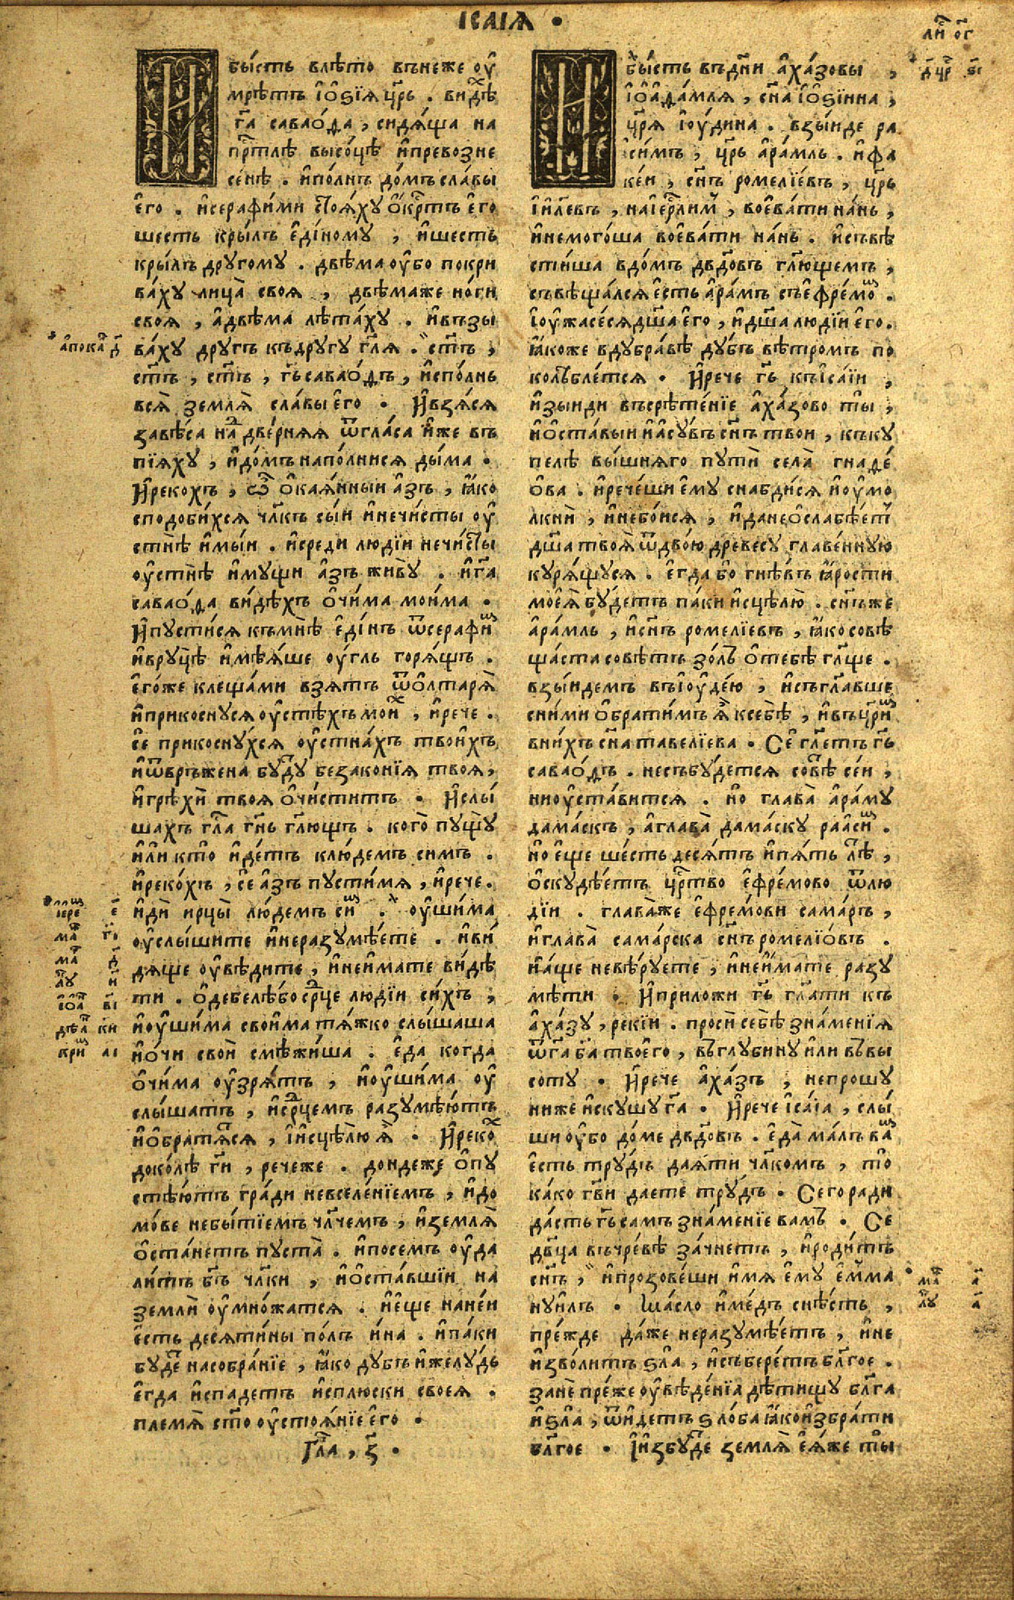 ІСАІѦ ·
ли҃ ог҃
И бы́сть влѣ́то вънеже оу҆
мрѣ́тъ і҆о҆ѕі́ꙗ цр҃ь . ви́дѣ
гⷭ҇а саваѡ́ѳа , сидѧ́ща на
прⷭ҇тлѣ высо́цѣ и҆превозне
се́нѣ . и҆по́лнъ до́мъ сла́вы
є҆го̀ . и҆серафи́ми стоѧ́ху ѻ҆́крⷭ҇тъ є҆го̀
шесть кры́лъ є҆ди́ному , и҆шесть
кры́лъ друго́му . двѣ́ма оу҆́бо покри
ва́ху лица̀ своѧ̀ , двѣ́маже но́ги
своѧ̀ , а҆двѣ́ма лѣта́ху . и҆възы
ва́ху дру́гъ къдру́гу гл҃ѧ . ст҃ъ ,
ст҃ъ , ст҃ъ , гь҃ саваѡ́ѳъ , и҆спо́лнь
всѧ̀ землѧ̀ сла́вы є҆го̀ . И҆взѧ́сѧ
завѣ́са наⷣ две́рнѧѧ ѿгла́са и҆́же въ
пїѧ́ху , и҆до́мъ напо́лнисѧ ды́ма .
И҆реко́хъ , ѽ ѻ҆каѧ́нныи а҆́зъ , ꙗ҆́ко
сподо́бихсѧ чл҃къ сы́и и҆нечи́сты оу҆
стнѣ̀ и҆мы́и . и҆средѝ людїи нечи́сты
оу҆стнѣ̀ и҆му́щи а҆́зъ живу̀ . и҆гⷭ҇а
саваѡ́ѳа ви́дѣхъ ѻ҆чи́ма мои́ма .
И҆пусти́сѧ къмнѣ̀ є҆ди́нъ ѿсерафи́ⷨ
и҆вруцѣ̀ и҆мѣ́ѧше оу҆́гль горѧ́щъ .
є҆го́же клеща́ми взѧ́тъ ѿѻ҆лтарѧ̀
и҆прикосну́сѧ оу҆стѣ́хъ мои́ⷯ , и҆речѐ .
сѐ прикосну́хсѧ оу҆стна́хъ твои́хъ
и҆ѿвръ́жена бу́дꙋ беззако́нїѧ твоѧ̀ ,
и҆грѣхѝ твоѧ̀ ѻ҆чи́ститъ . И҆слы́
шахъ гла́ гн҃ь гл҃ющъ . кого̀ пущу̀
и҆́ли кто̀ и҆́детъ клю́демъ симъ .
и҆реко́хъ , сѐ а҆́зъ пусти́мѧ , и҆речѐ .
и҆дѝ ирцы̀ лю́демъ си́ⷨ . оу҆ши́ма
оу҆слы́шите и҆неразумѣ́ете . и҆ви́
дѧще оу҆ви́дите , и҆неи҆́мате ви́дѣ
ти . ѻ҆дебелѣ́бо ср҃це людїи си́хъ ,
и҆оу҆ши́ма свои́ма тѧ́жко слы́шаша
и҆ѻ҆́чи своѝ смѣжи́ша . є҆да̀ когда̀
ѻ҆чи́ма оу҆́зрѧтъ , и҆оу҆ши́ма оу҆
слы́шатъ , и҆ср҃цемъ разумѣ́ютъ
и҆ѻ҆братѧ́сѧ , і҆и҆сцѣлю̀ ѧ҆̀ . И҆реко́ⷯ
доко́лѣ гⷭ҇и , рече́же . до́идеже ѻ҆пу
стѣ́ютъ гра́ди невселе́нїемъ , и҆до
мо́ве небы́тїемъ чл҃чемъ , и҆землѧ̀
ѻ҆ста́нетъ пуста̀ . и҆посемъ оу҆да
ли́тъ бг҃ъ чл҃ки , и҆ѻ҆ста́вшїи на
землѝ оу҆мно́жатсѧ . и҆є҆ще нане́и
є҆сть десѧти́ны по́лъ и҆на̀ . и҆па́ки
бу́де насобра́нїе , ꙗ҆́ко ду́бъ и҆желу́дь
є҆гда̀ и҆спаде́тъ и҆сплю́ски своеѧ̀ .
пле́мѧ ст҃о оу҆стоѧ́нїе є҆го̀ .
Гла҃ , з҃ .
И бы́сть въдн҃и а҆ха́зовы ,
і҆ѻ҆аѳа́млѧ , сн҃а і҆о҆ѕі́ина ,
цр҃ѧ і҆ю҆́дина . взы́иде ра
си́мъ , цр҃ь а҆ра́мль . и҆фа
ке́и , сн҃ъ роме́лїевъ , цр҃ь
і҆и҃левъ , наі҆ерⷭ҇ли́мъ , воева́ти на́нь ,
и҆немого́ша воева́ти на́нь . и҆съвѣ
сти́ша вдо́мъ дв҃довъ гл҃ющемъ ,
съвѣща́лсѧ є҆сть а҆ра́мъ съе҆фре́моⷨ .
і҆оу҆жасе́сѧ дш҃а є҆го̀ , и҆дш҃а людїи є҆го̀ .
ꙗ҆́коже вдубра́вѣ ду́бъ вѣ́тромъ по
колѣ́блетсѧ . И҆речѐ гь҃ къі҆са́їи ,
и҆зы́иди въсрѣ́тенїе а҆ха́зово ты̀ ,
и҆ѻ҆ста́выи и҆а҆су́въ сн҃ъ твои , къку
пелѣ вы́шнѧго путѝ села̀ гнаѳе́
ѻ҆ва . и҆рече́ши є҆му̀ снабди́сѧ и҆оу҆мо́
лкнѝ , и҆небо́исѧ , и҆дане ѻ҆слабѣ́етъ
дш҃а твоѧ̀ ѿдвою̀ древесу̀ главе́нную
курѧ́щусѧ . є҆гда̀ бо гнѣ́въ ꙗ҆́рости
моеѧ̀ бу́детъ па́ки и҆сцѣлю̀ . сн҃ъже
а҆ра́мль , и҆сн҃ъ роме́лїевъ , ꙗ҆́ко совѣ
ща́ста совѣ́тъ зо́лъ ѻ҆тебѣ̀ гл҃ще .
взы́идемъ въі҆ю҆де́ю , и҆съгл҃авше
сни́ми ѻ҆брати́мъ ѧ҆̀ ксебѣ̀ , и҆въцр҃и́ⷨ
вни́хъ сн҃а таве́лїева . Сѐ гл҃етъ гь҃
саваѡ́ѳъ . несъбу́детсѧ совѣ́ се́и ,
ниоу҆ста́витсѧ . но̀ глава̀ а҆ра́му
дама́скъ , а҆глава̀ дама́ску рааси́ⷨ .
но̀ є҆щѐ ше́сть десѧ́тъ и҆пѧ́ть лѣ́ⷮ ,
ѻ҆скудѣ́етъ црⷭ҇тво е҆фре́мово ѿлю
дїи . глава́же е҆фре́мови сама́ръ ,
и҆глава̀ сама́рска сн҃ъ роме́лїѻ҆въ .
и҆а҆́ще невѣ́руете , и҆неи҆́мате разу
мѣ́ти . И҆приложѝ гь҃ гл҃ати къ
а҆ха́зу , реки́и . просѝ себѣ̀ зна́менїѧ
ѿгⷭ҇а ба҃ твоего̀ , въглубину̀ и҆́ли въвы
соту̀ . И҆речѐ а҆ха́зъ , непрошу̀
ниже и҆скушу̀ гⷭ҇а . И҆рече і҆са́їа , слы́
ши оу҆́бо до́ме дв҃довъ . є҆да̀ ма́лъ ваⷨ
є҆сть тру́дъ даѧ́ти чл҃комъ , то̀
ка́ко гв҃и дае́те тру́дъ . Сего̀ ради
да́сть гь҃ самъ зна́менїе ва́мъ . Сѐ
дв҃ца въчре́вѣ за́чнетъ , и҆роди́тъ
сн҃ъ , и҆прозове́ши и҆́мѧ є҆му̀ е҆м҃ма
нуи́лъ . Ма́сло и҆ме́дъ снѣ́сть ,
пре́жде да́же неразумѣ́етъ , и҆не
и҆зво́литъ ѕл҃а , и҆събере́тъ бл҃гое .
занѐ пре́же оу҆вѣ́дѣнїа дѣ́тищу бл҃га
и҆ѕла̀ , ѿи҆́детъ ѕло́ба ꙗ҆́коизбра́ти
бл҃гое . І҆и҆збу́де землѧ̀ є҆ѧ́же ты̀